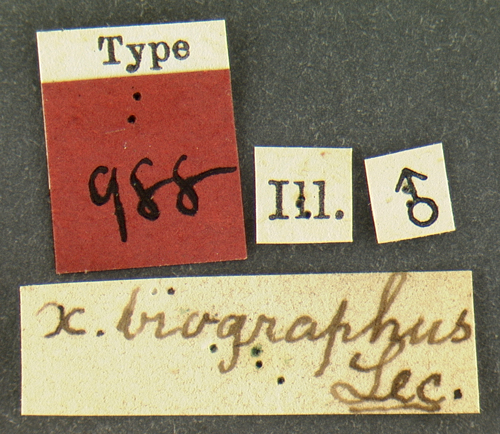 Type
988
Ill.
♂
x. biographus
Lec.